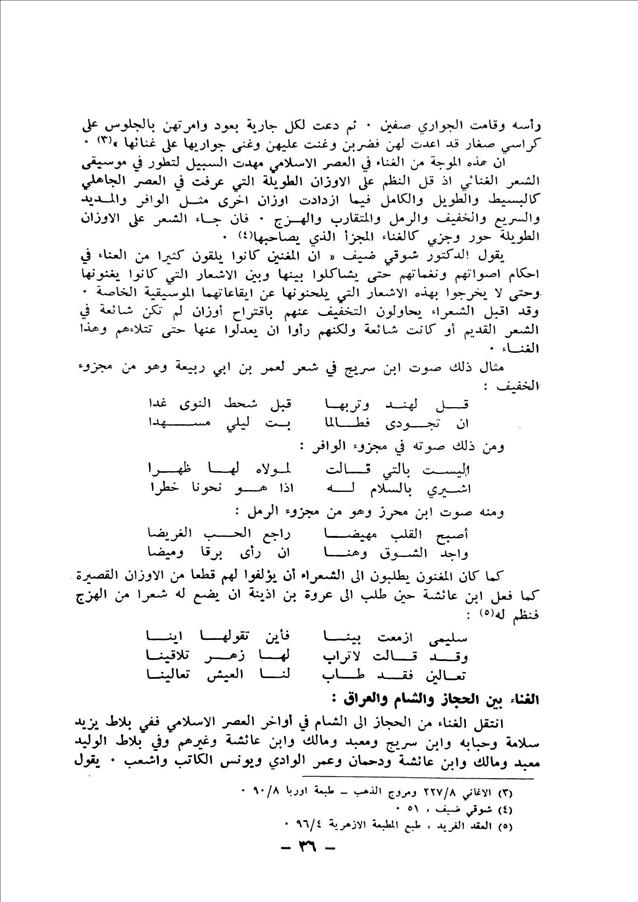 رأسه وقامت الجواري صفين ٠ ثم دعت لكل جارية بعود وامرتهن بالجلوس على
كراسي صغار قد اعدت لهن فضربن وغنت عليهن وغنى جواريها على غنائها »(٣) ٠
ان هذه الموجة من الغناء في العصر الاسلامي مهدت السبيل لتطور في موسيقى
الشعر الغنائي اذ قل النظم على الاوزان الطويلة التي عرفت في العصر الجاهلي
كالبسيط والطويل والكامل فيما ازدادت اوزان اخرى مثل الوافر والمديد
والسريع والخفيف والرمل والمتقارب والهزج ٠ فان جاء الشعر على الاوزان
الطويلة حور وجزي كالغناء المجزأ الذي يصاحبها(٤) ٠
يقول الدكتور شوقي ضيف « ان المغنين كانوا يلقون كثيرا من العناء في
احكام اصواتهم ونغماتهم حتى يشاكلوا بينها وبين الاشعار التي كانوا يغنونها
وحتى لا يخرجوا بهذه الاشعار التي يلحنونها عن ايقاعاتهما الموسيقية الخاصة ٠
وقد اقبل الشعراء يحاولون التخفيف عنهم باقتراح أوزان لم تكن شائعة في
الشعر القديم أو كانت شائعة ولكنهم رأوا ان يعدلوا عنها حتى تتلاءم وهذا
الغناء ٠
مثال ذلك صوت ابن سريج في شعر لعمر بن ابي ربيعة وهو من مجزوء
الخفيف :
قل لهند وتربها قبل شحط النوى غدا
ان تجودى فطالما بت ليلي مسهدا
ومن ذلك صوته في مجزوء الوافر :
اليست بالتي قالت لمولاه لها ظهرا
اشيري بالسلام له اذا هو نحونا خطرا
ومنه صوت ابن محرز وهو من مجزوء الرمل :
أصبح القلب مهيضا راجع الحب الغريضا
واجد الشوق وهنا ان رأى برقا وميضا
كما كان المغنون يطلبون الى الشعراء أن يؤلفوا لهم قطعا من الاوزان القصيرة
كما فعل ابن عائشة حين طلب الى عروة بن اذينة ان يضع له شعرا من الهزج
فنظم له(٥) :
سليمى ازمعت بينا فأين تقولها اينا
وقد قالت لاتراب لها زهر تلاقينا
تعالين فقد طاب لنا العيش تعالينا
الغناء بين الحجاز والشام والعراق :
انتقل الغناء من الحجاز الى الشام في أواخر العصر الاسلامي ففي بلاط يزيد
سلامة وحبابه وابن سريج ومعبد ومالك وابن عائشة وغيرهم وفي بلاط الوليد
معبد ومالك وابن عائشة ودحمان وعمر الوادي ويونس الكاتب واشعب ٠ يقول
(٣) الاغاني ٢٢٧/٨ ومروج الذهب ـ طبعة اوربا ٩٠/٨ ٠
(٤) شوقي ضيف ، ٥١ ٠
(٥) العقد الفريد ، طبع المطبعة الازهرية ٩٦/٤ ٠
ـ ٣٦ ـ